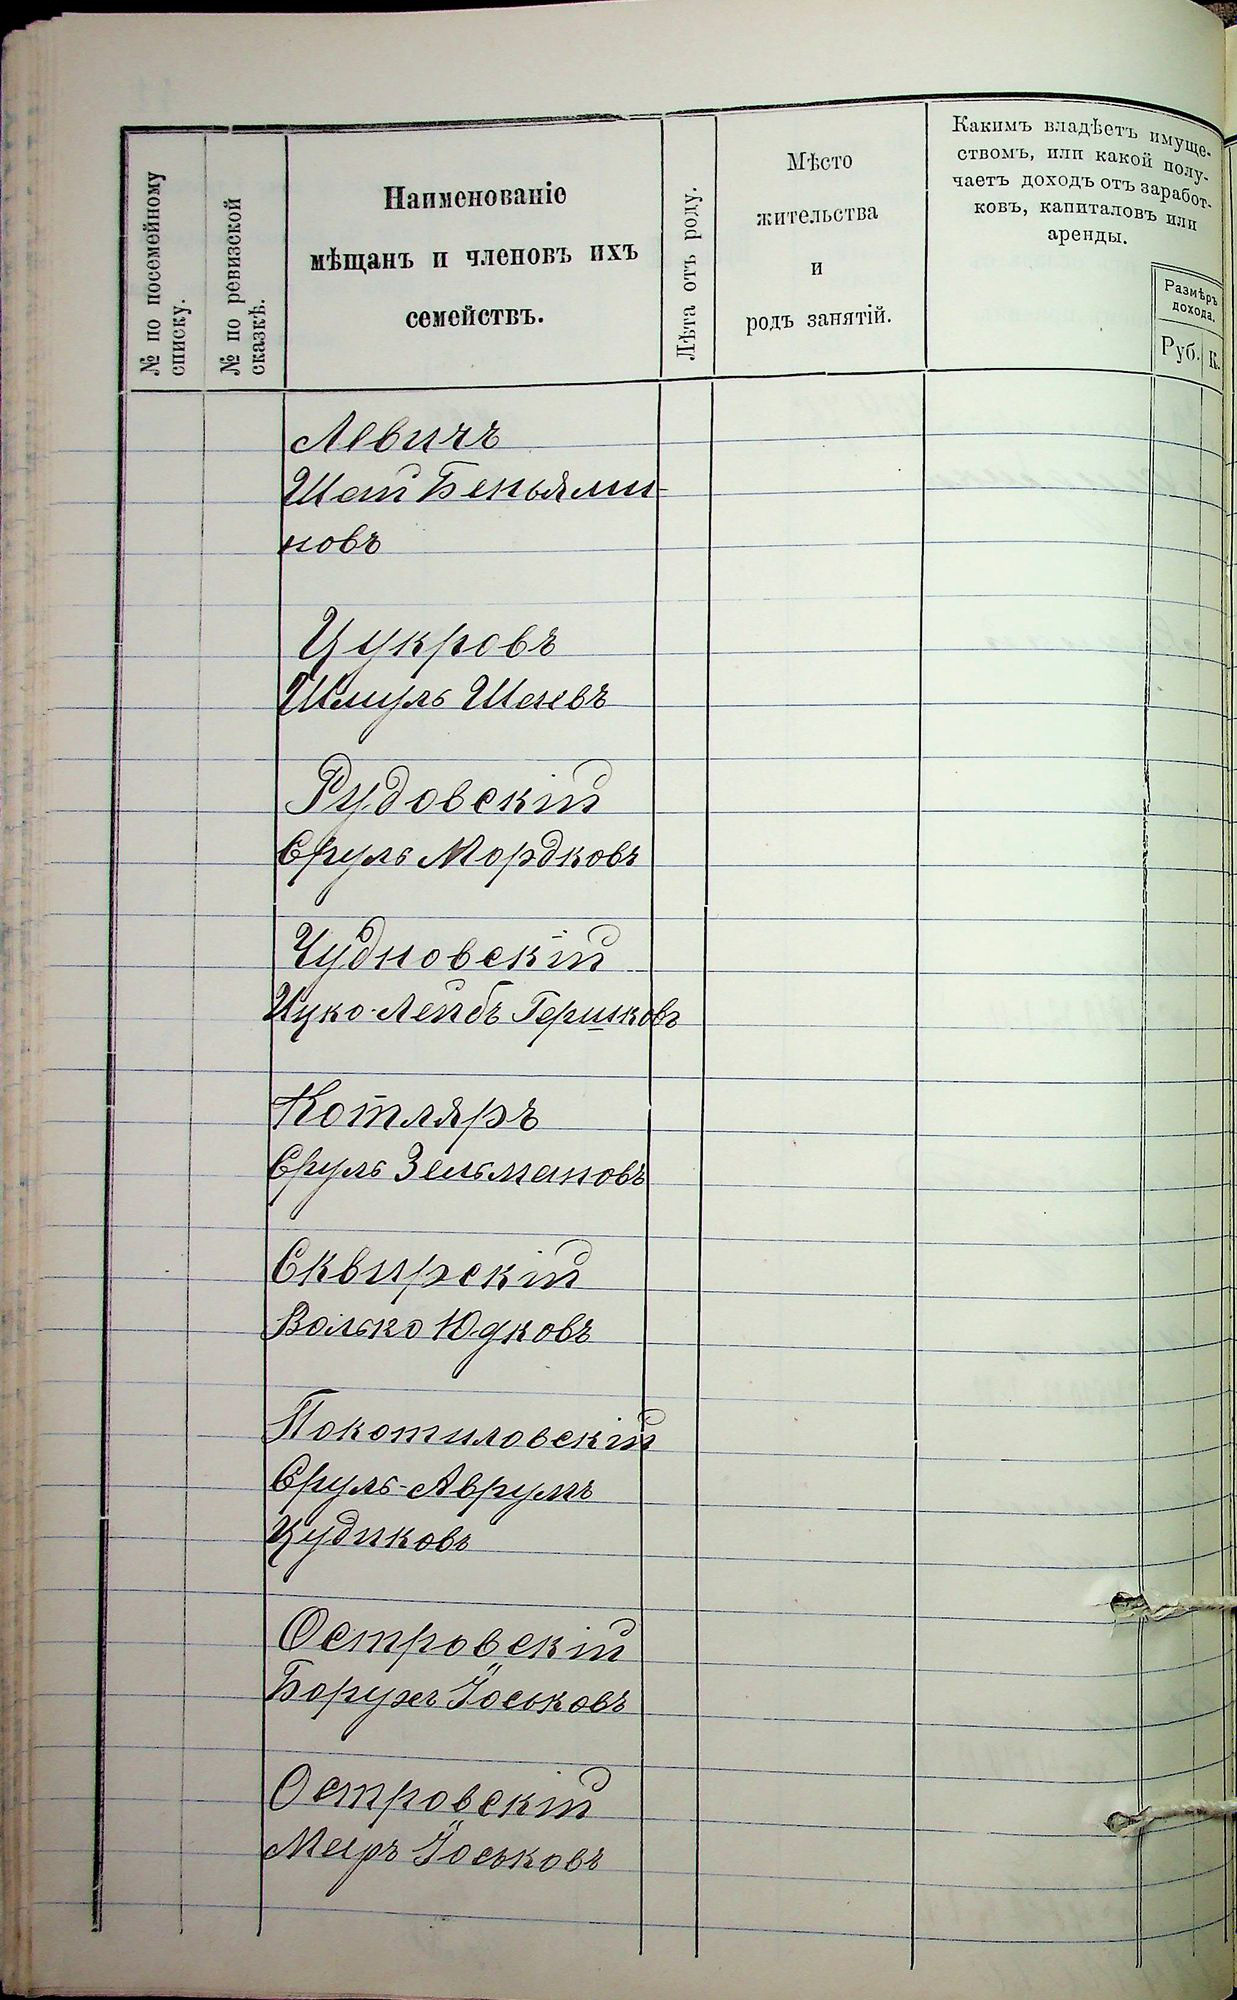 № по посемейному
списку.
№ по ревизской
сказкѣ.
Наименованіе
мѣщанъ и членовъ ихъ
семействъ.
Лѣта отъ роду.
Мѣсто
жительства
и
родъ занятій.
Какимъ владѣетъ имуще-
ствомъ, или какой полу-
чаетъ доходъ отъ заработ-
ковъ, капиталовъ или
аренды.
Размѣръ
дохода.
Руб. К.
Левичъ
Шай Беньями-
новъ
Цукровъ
Шмуль Шаевъ
Рудовскій
Сруль Мордковъ
Чудновскій
Ицко-Лейбъ Гершковъ
Котляръ
Сруль Зельмановъ
Сквирскій
Волько Юдковъ
Покотиловскій
Сруль-Аврумъ
Цудиковъ
Островскій
Борухъ Іоськовъ
Островскій
Меиръ Іоськовъ